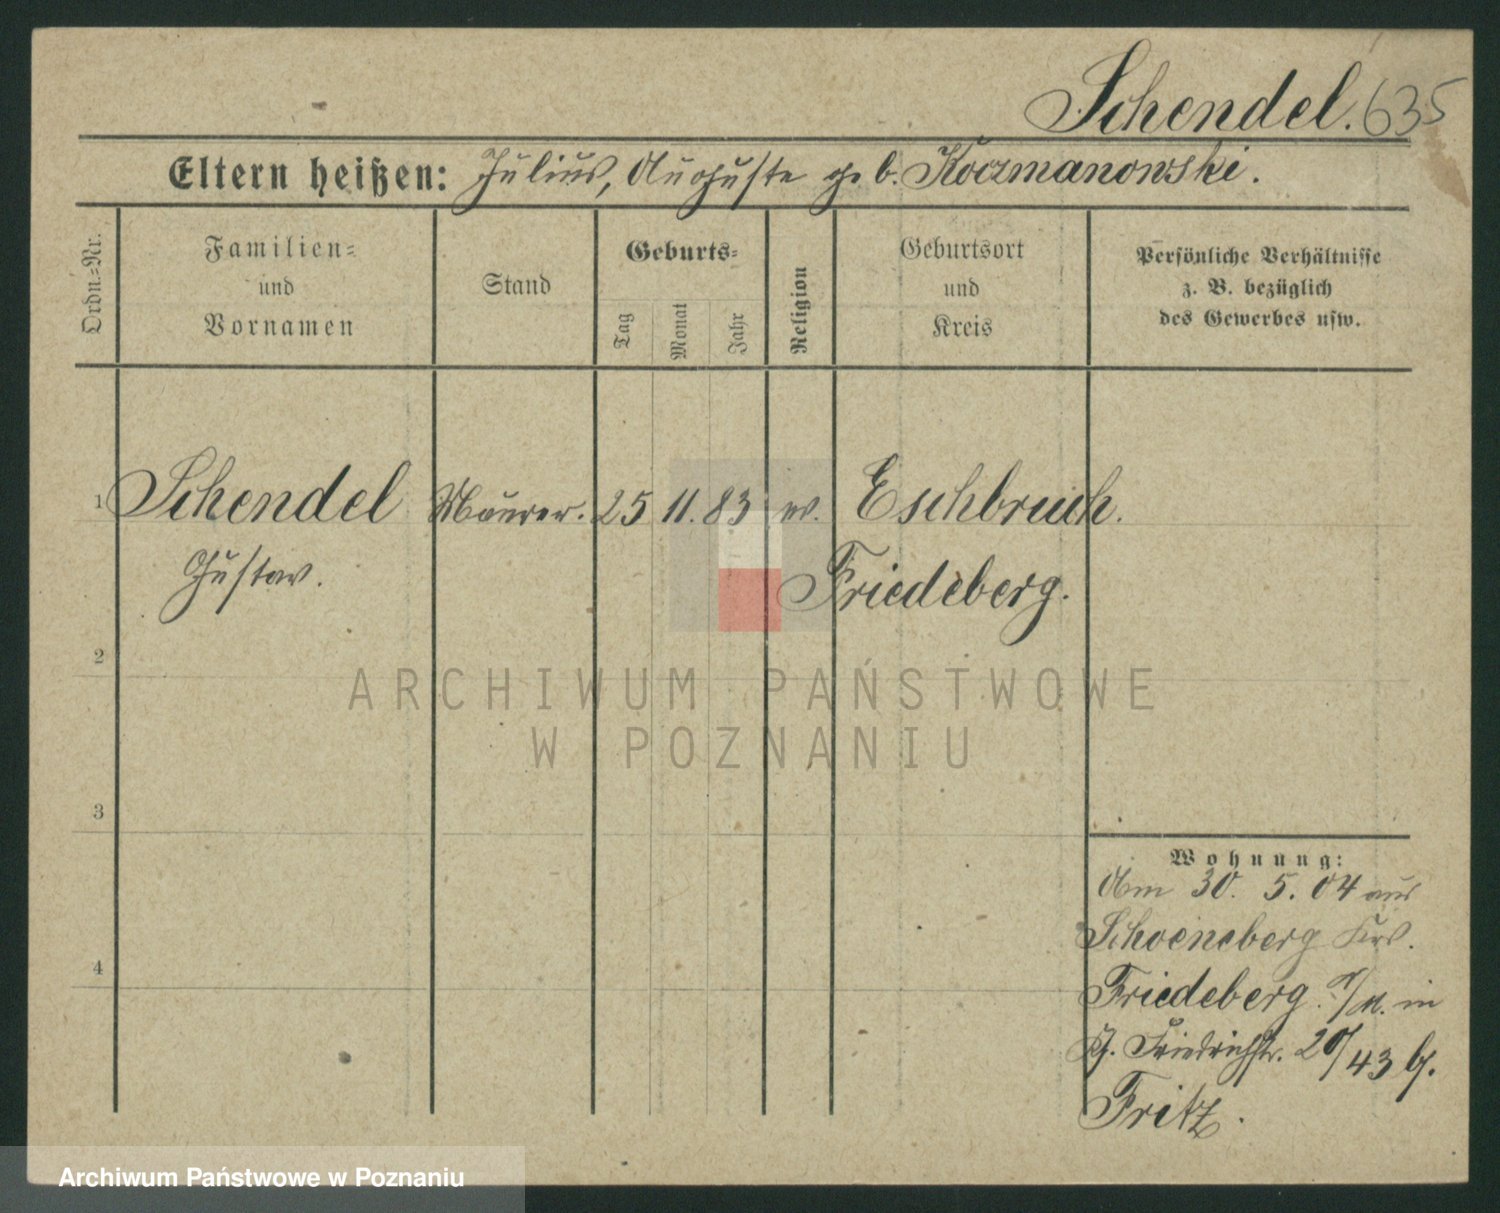 Schendel. 635
Eltern heißen: Julius, Auguste geb. Koczmanowski.
Ordn.-Nr.
Familien-
und
Vornamen
Stand
Geburts-
Tag
Monat
Jahr
Religion
Geburtsort
und
Kreis
Persönliche Verhältnisse
z. B. bezüglich
des Gewerbes usw.
1 Schendel Maurer. 25 11. 83 ev. Eschbruch.
Gustav. Friedeberg.
2
ARCHIWUM PAŃSTWOWE
W POZNANIU
3
Wohnung:
Am 30. 5. 04 aus
Schoeneberg Krs.
Friedeberg N/M. in
J. Friedrichstr. 20/43 b.
Fritz.
4
Archiwum Państwowe w Poznaniu